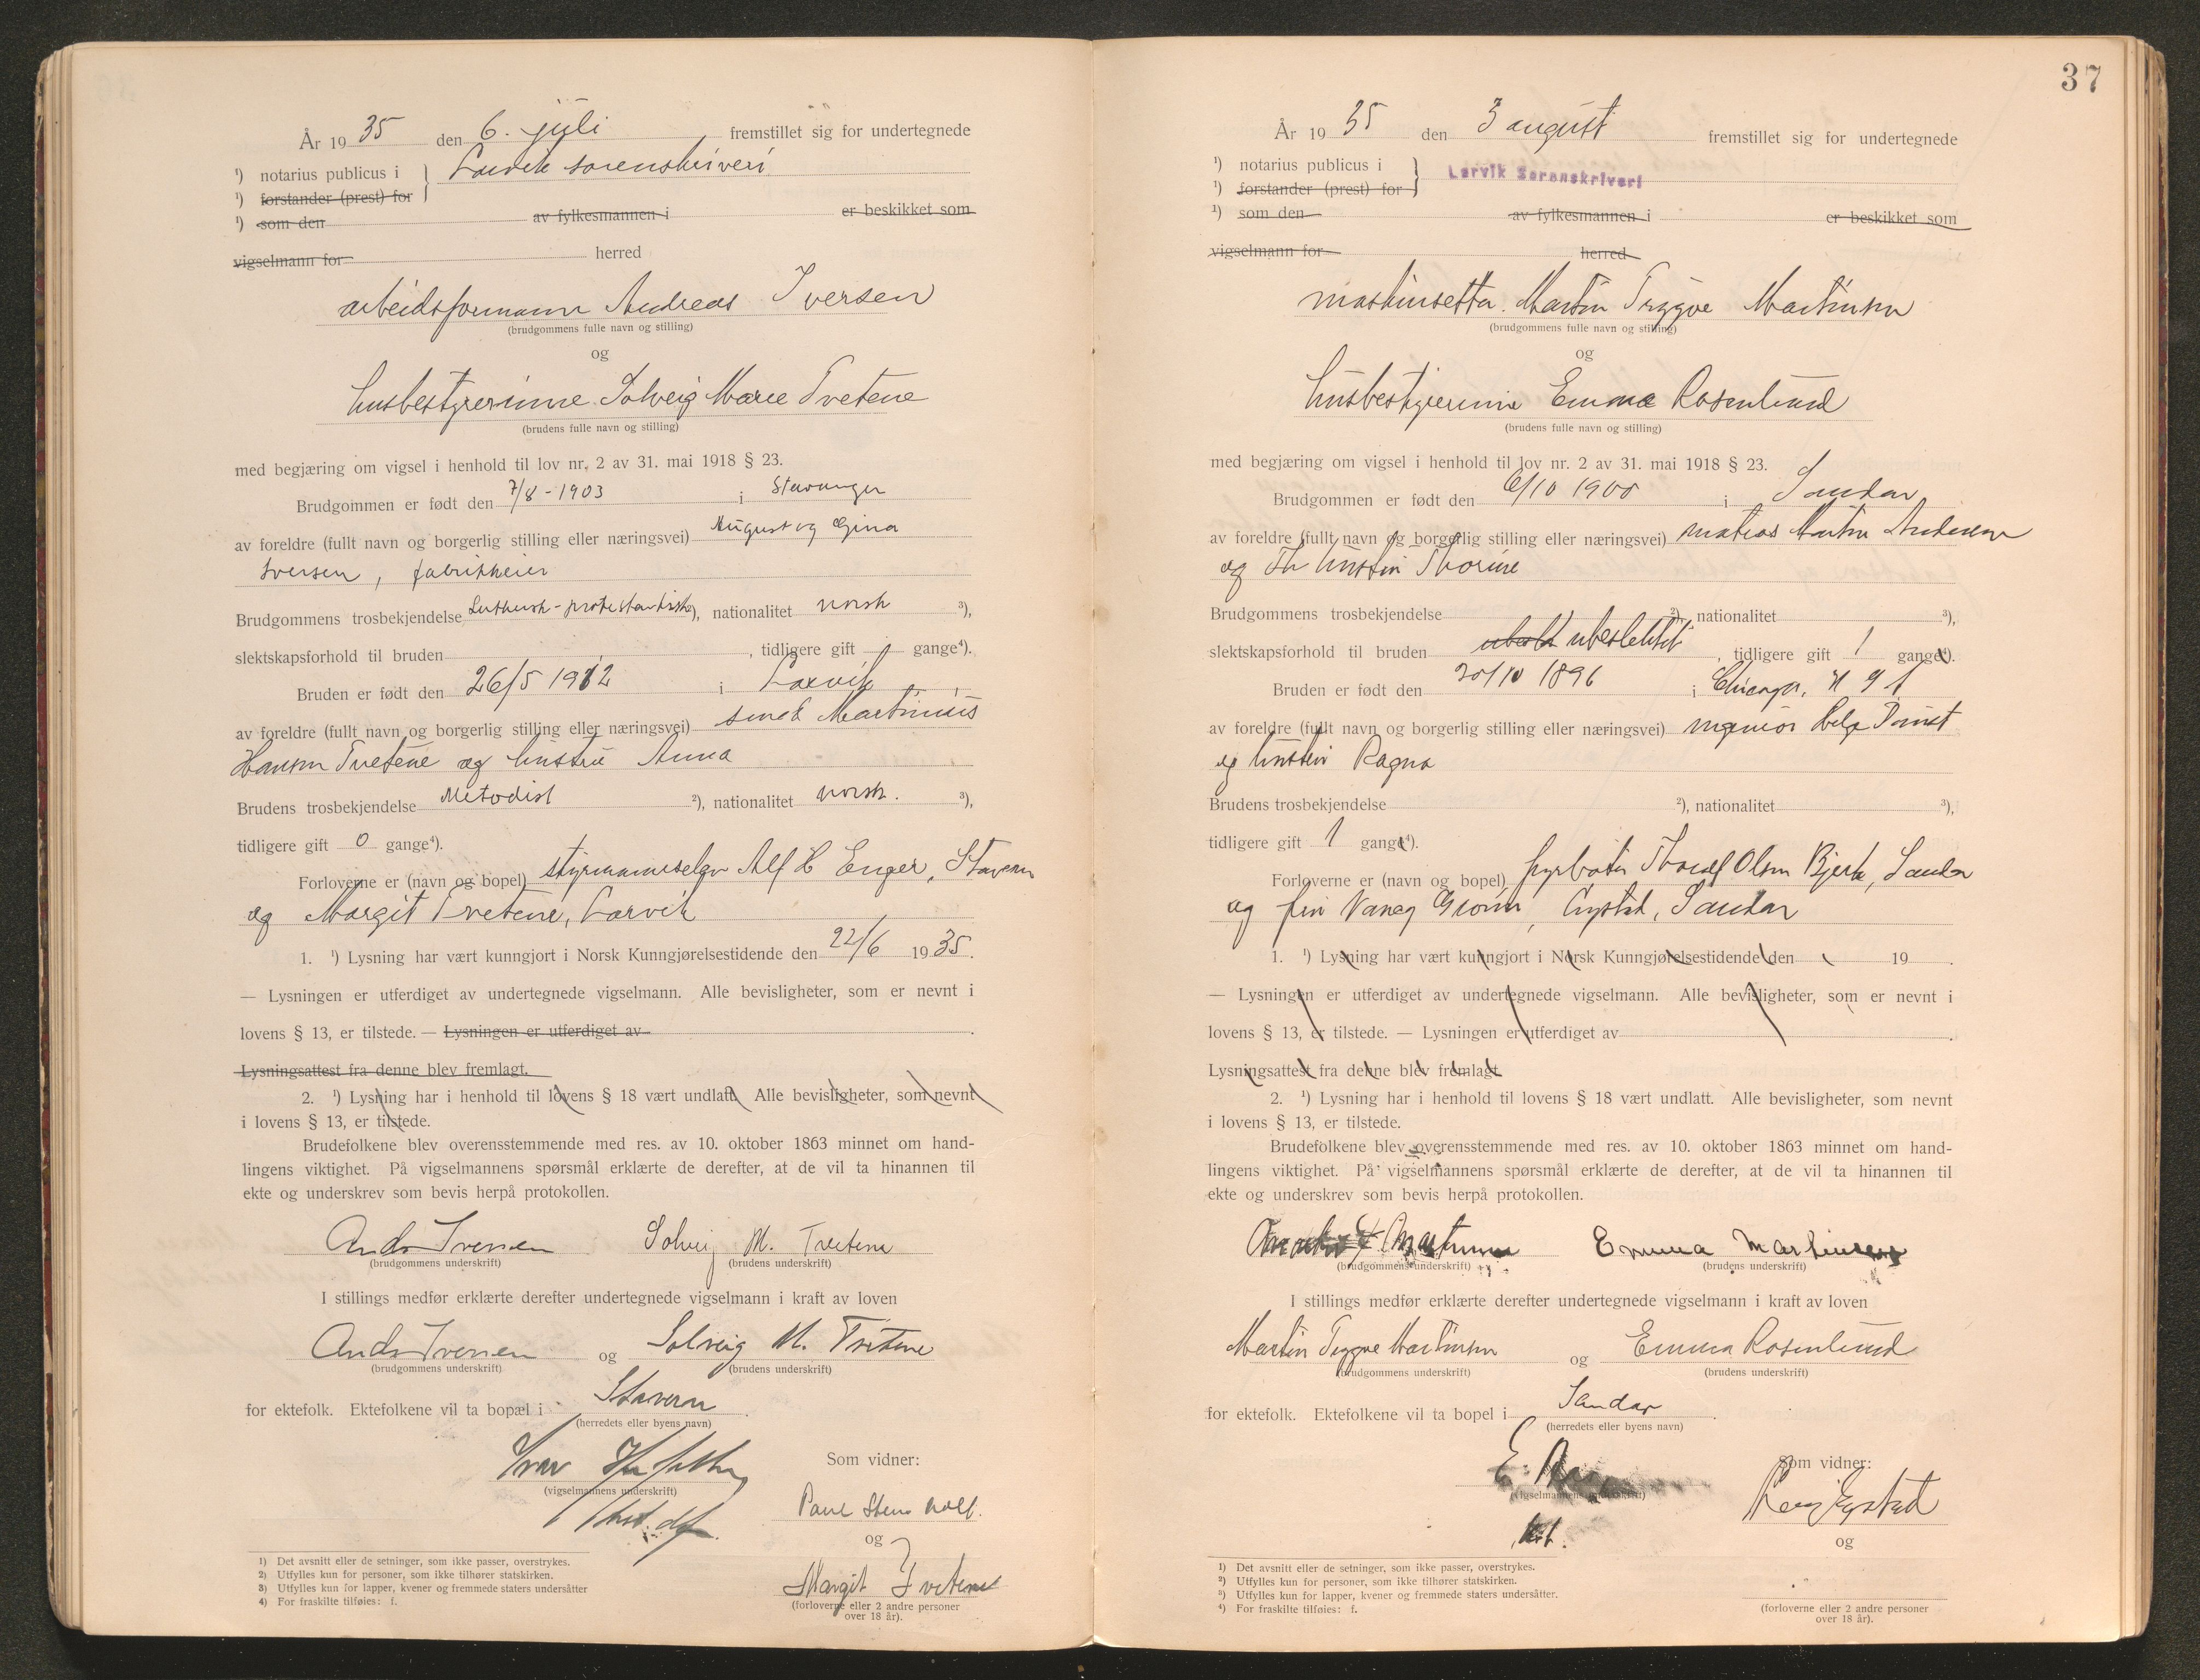 År 1935 den 6. juli fremstillet sig for undertegnede
¹) notarius publicus i } Larvik sorenskriveri
¹) forstander (prest) for
¹) som den av fylkesmannen i er beskikket som
vigselmann for herred
arbeidsformann Andreas Iversen
(brudgommens fulle navn og stilling)
og
husbestyrerinne Solveig Marie Tvetene
(brudens fulle navn og stilling)
med begjæring om vigsel i henhold til lov nr. 2 av 31. mai 1918 § 23.
Brudgommen er født den 7/8-1903 i Stavanger
av foreldre (fullt navn og borgerlig stilling eller næringsvei) August og Gina
Iversen, fabrikkeier
Brudgommens trosbekjendelse Luthersk-protestantisk ²), nationalitet norsk ³),
slektskapsforhold til bruden , tidligere gift 1 gange⁴).
Bruden er født den 26/5 1912 i Larvik
av foreldre (fullt navn og borgerlig stilling eller næringsvei) smed Martinius
Hansen Tvetene og hustru Anna
Brudens trosbekjendelse Metodist ²), nationalitet norsk. ³),
tidligere gift 0 gange⁴).
Forloverne er (navn og bopel) styrmannselev Alf H Enger, Stavern
og Margit Tvetene, Larvik
1. ¹) Lysning har vært kunngjort i Norsk Kunngjørelsestidende den 22/6 1935.
— Lysningen er utferdiget av undertegnede vigselmann. Alle bevisligheter, som er nevnt i
lovens § 13, er tilstede. — Lysningen er utferdiget av .
Lysningsattest fra denne blev fremlagt.
2. ¹) Lysning har i henhold til lovens § 18 vært undlatt. Alle bevisligheter, som nevnt
i lovens § 13, er tilstede.
Brudefolkene blev overensstemmende med res. av 10. oktober 1863 minnet om hand-
lingens viktighet. På vigselmannens spørsmål erklærte de derefter, at de vil ta hinannen til
ekte og underskrev som bevis herpå protokollen.
Andr Iversen Solveig M. Tvetene
(brudgommens underskrift) (brudens underskrift)
I stillings medfør erklærte derefter undertegnede vigselmann i kraft av loven
Andr Iversen og Solveig M. Tvetene
(brudgommens underskrift) (brudens underskrift)
for ektefolk. Ektefolkene vil ta bopæl i Stavern .
(herredets eller byens navn)
Ivar
Som vidner:
(vigselmannens underskrift)
Paul Stens
og
Margit Tvetene
(forloverne eller 2 andre personer
over 18 år).
1) Det avsnitt eller de setninger, som ikke passer, overstrykes.
2) Utfylles kun for personer, som ikke tilhører statskirken.
3) Utfylles kun for lapper, kvener og fremmede staters undersåtter
4) For fraskilte tilføies: f.
37
År 1935 den 3 august fremstillet sig for undertegnede
¹) notarius publicus i } Larvik Sorenskriveri
¹) forstander (prest) for
¹) som den av fylkesmannen i er beskikket som
vigselmann for herred
maskinsetter Martin Trygve Martinsen
(brudgommens fulle navn og stilling)
og
husbestyrerinne Emma Rosenlund
(brudens fulle navn og stilling)
med begjæring om vigsel i henhold til lov nr. 2 av 31. mai 1918 § 23.
Brudgommen er født den 6/10 1900 i Sandar
av foreldre (fullt navn og borgerlig stilling eller næringsvei) Martin Andersen
og hustru Thorine
Brudgommens trosbekjendelse ²), nationalitet ³),
slektskapsforhold til bruden ubeslektet , tidligere gift 1 gange⁴).
Bruden er født den 30/10 1896 i Chicago,
av foreldre (fullt navn og borgerlig stilling eller næringsvei)
og hustru Ragna
Brudens trosbekjendelse ²), nationalitet ³),
tidligere gift 1 gange⁴).
Forloverne er (navn og bopel) fyrbøter Olsen Bjerke, Sandar
og fru Gystad, Sandar
1. ¹) Lysning har vært kunngjort i Norsk Kunngjørelsestidende den 19 .
— Lysningen er utferdiget av undertegnede vigselmann. Alle bevisligheter, som er nevnt i
lovens § 13, er tilstede. — Lysningen er utferdiget av .
Lysningsattest fra denne blev fremlagt
2. ¹) Lysning har i henhold til lovens § 18 vært undlatt. Alle bevisligheter, som nevnt
i lovens § 13, er tilstede.
Brudefolkene blev overensstemmende med res. av 10. oktober 1863 minnet om hand-
lingens viktighet. På vigselmannens spørsmål erklærte de derefter, at de vil ta hinannen til
ekte og underskrev som bevis herpå protokollen.
Martinsen Emma Martinsen
(brudgommens underskrift) (brudens underskrift)
I stillings medfør erklærte derefter undertegnede vigselmann i kraft av loven
Martin Trygve Martinsen og Emma Rosenlund
(brudgommens underskrift) (brudens underskrift)
for ektefolk. Ektefolkene vil ta bopel i Sandar .
(herredets eller byens navn)
E.
Som vidner:
(vigselmannens underskrift)
og
(forloverne eller 2 andre personer
over 18 år).
¹) Det avsnitt eller de setninger, som ikke passer, overstrykes.
²) Utfylles kun for personer, som ikke tilhører statskirken.
³) Utfylles kun for lapper, kvener og fremmede staters undersåtter.
⁴) For fraskilte tilføies: f.